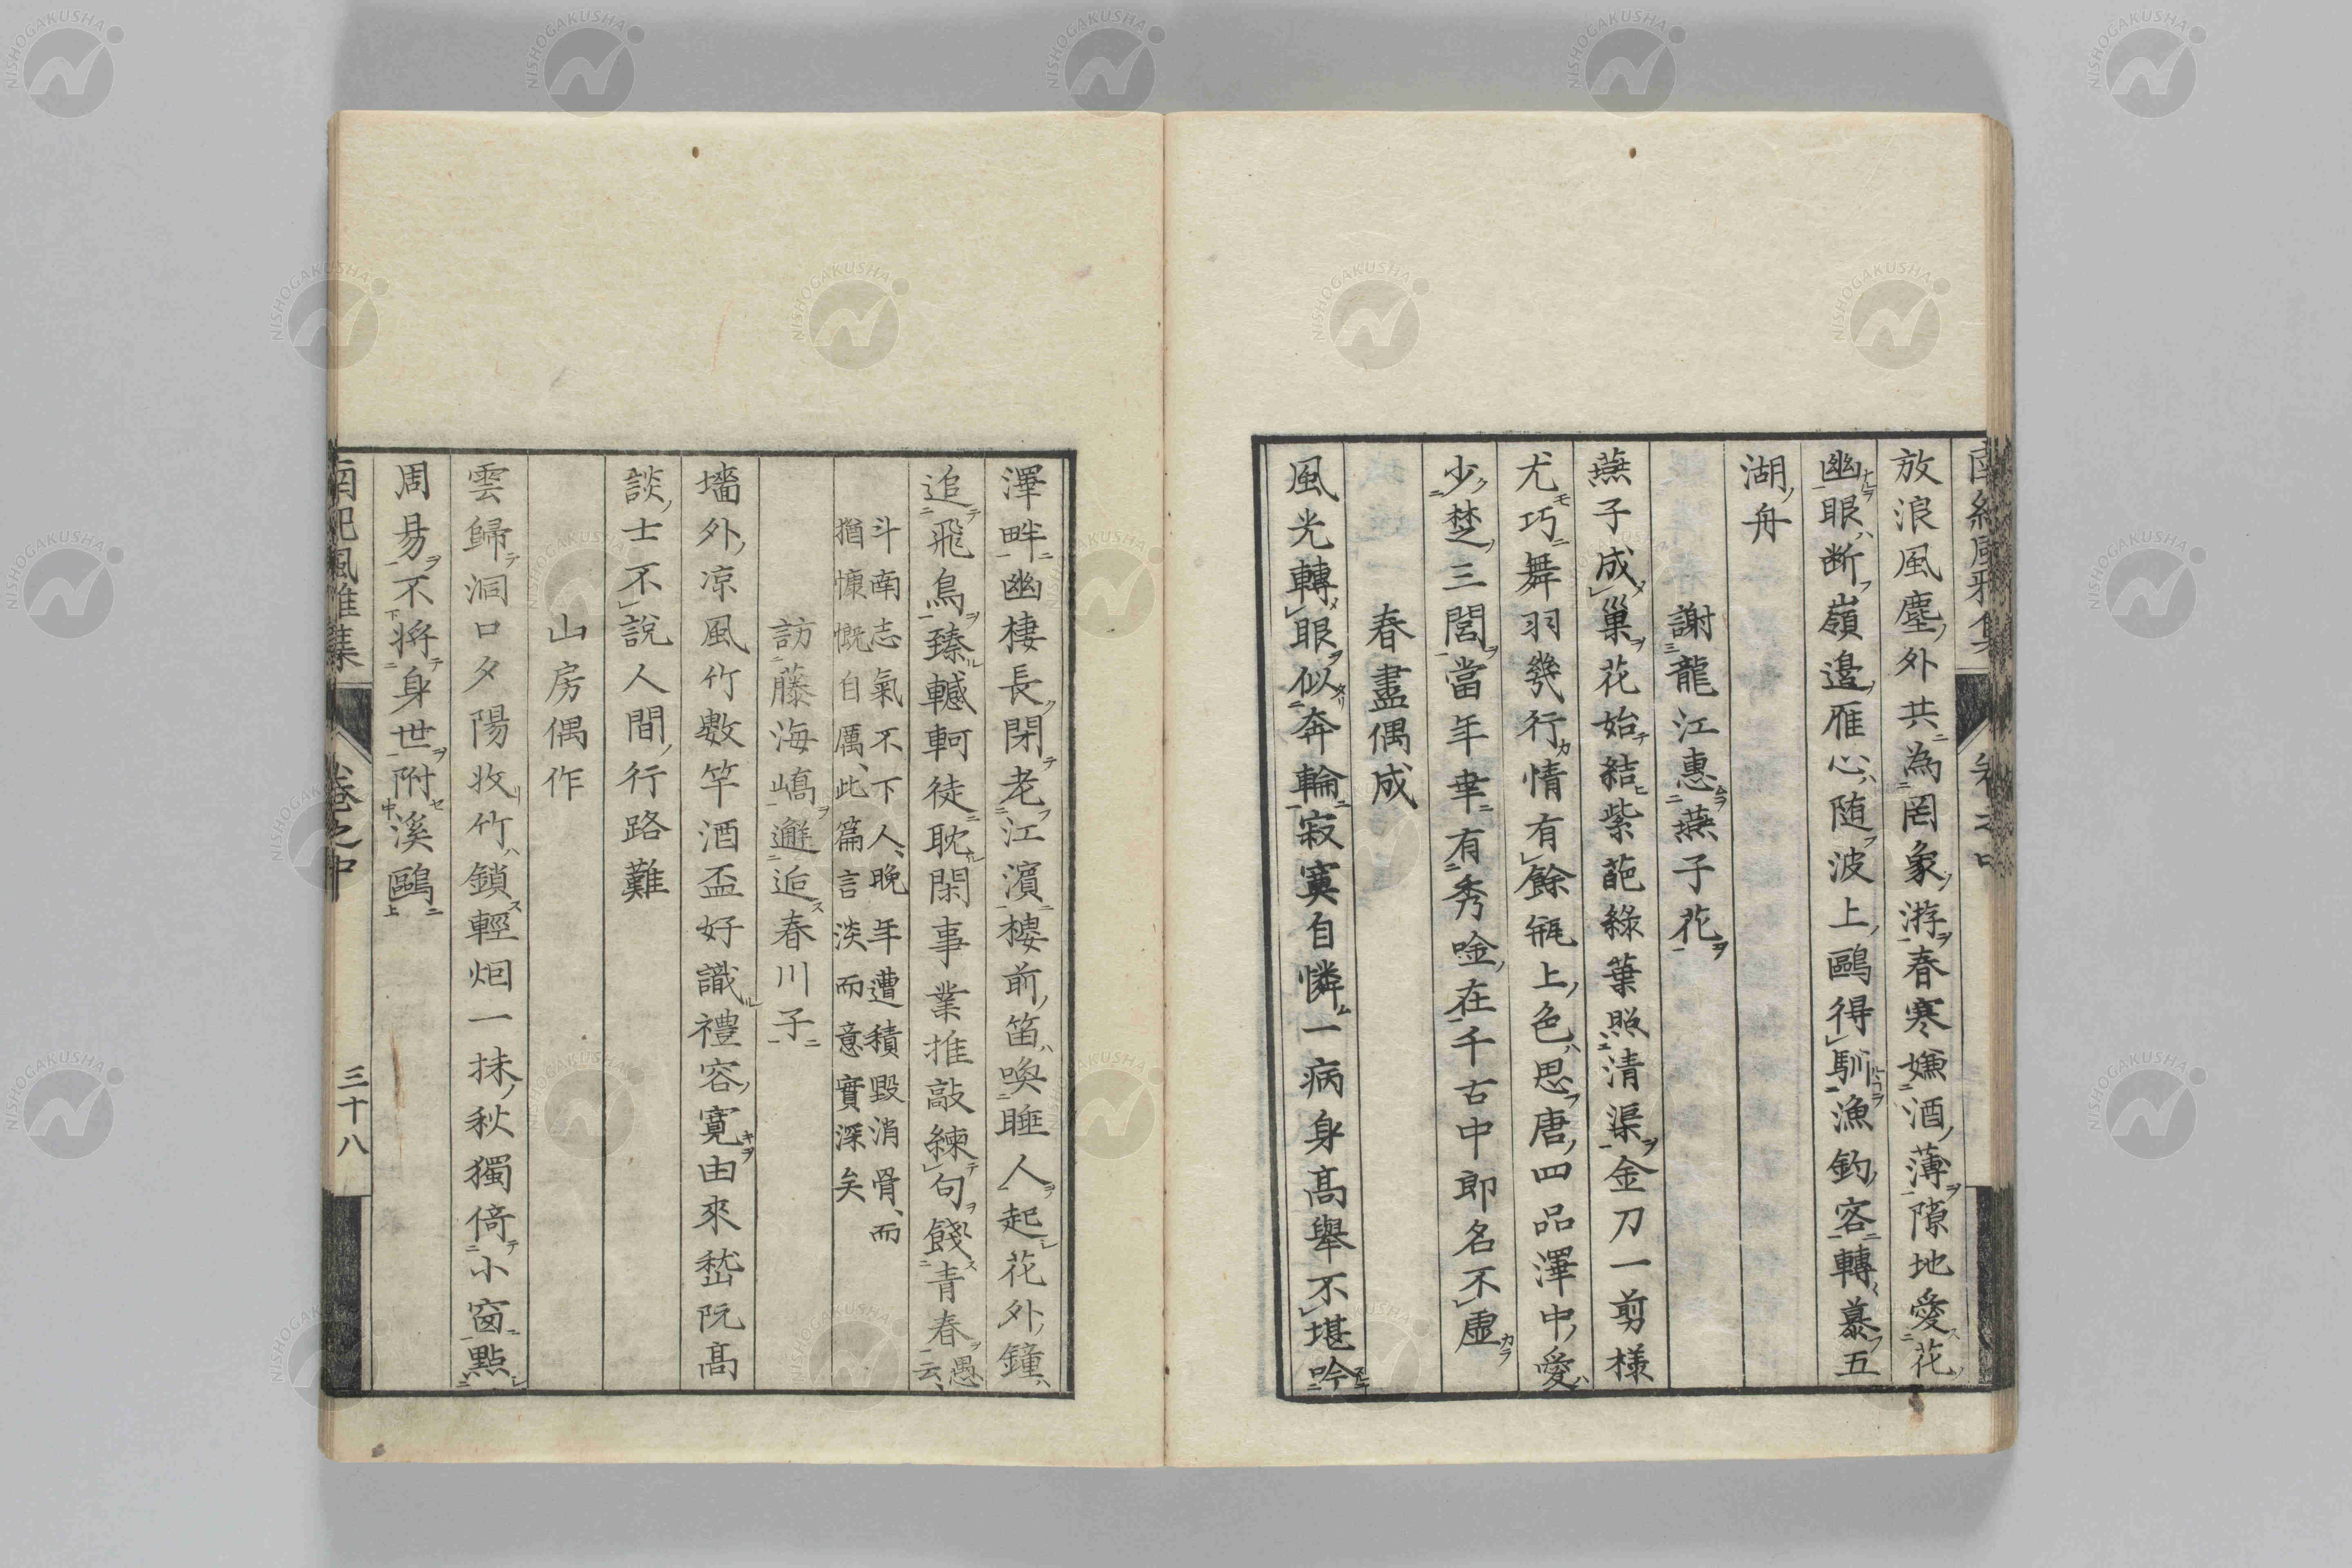 放浪風塵外共為罔象游春寒嫌酒薄隙地愛花
幽眼断嶺邊雁心随波上鷗得馴漁釣客轉慕五
湖舟
謝龍江惠燕子花
燕子成巢花始結紫葩綠葉照清渠金刀一剪樣
尤巧舞羽幾行情有餘瓶上色思唐四品澤中愛
少楚三閭當年幸有秀唫在千古中郎名不虛
春盡偶成
風光轉眼似奔輪寂寞自憐一病身高舉不堪吟
澤畔幽棲長閉老江濱樓前笛喚睡人起花外鐘
追飛鳥臻轗軻徒耽閑事業推敲練句餞青春愚云
斗南志氣不下人晚年遭積毀消骨而
猶慷慨自厲此篇言淡而意實深矣
訪藤海嶠邂逅春川子
墻外凉風竹數竿酒盃好識禮容寬由來嵆阮高
談士不說人間行路難
山房偶作
雲歸洞口夕陽收竹鎖輕烟一抹秋獨倚小窗點
周易不將身世附溪鷗
南紀風雅集
卷之中
三十八
NISHOGAKUSHA